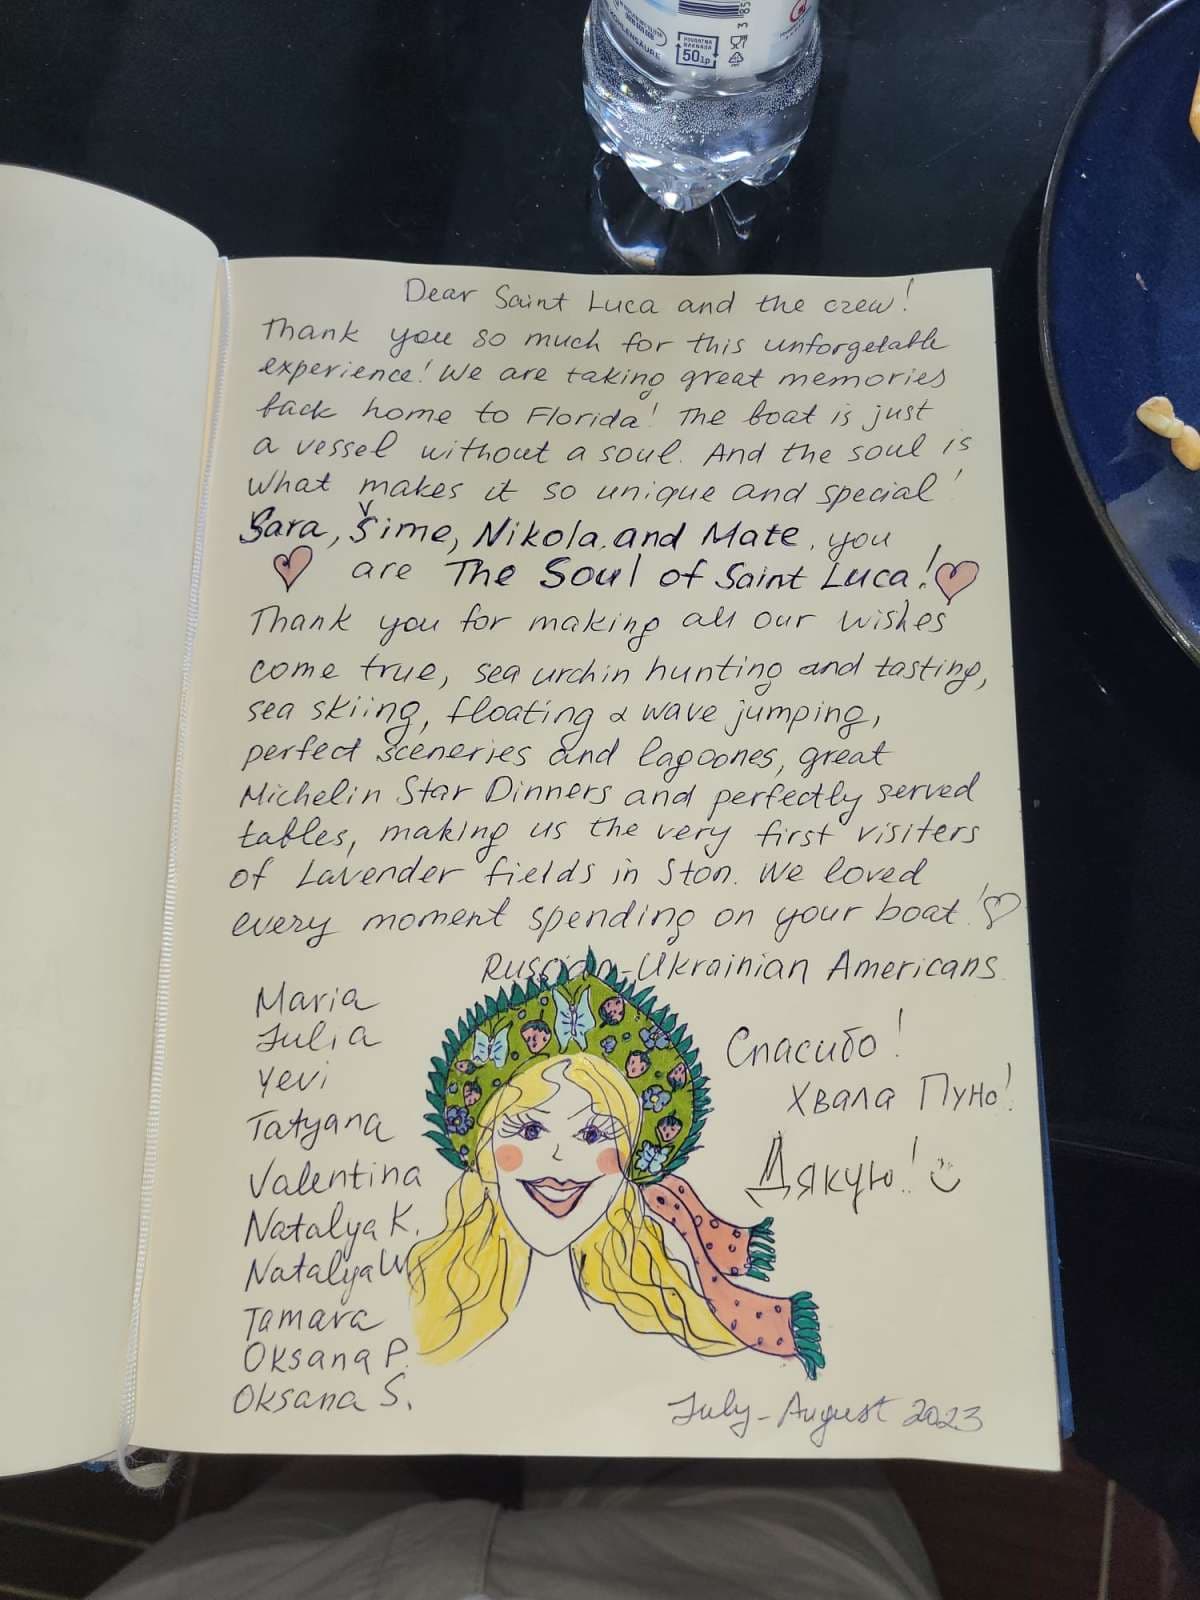 KOHLENSÄURE
POVRATNA
NAKNADA
50 lp
3 85
Dear Saint Luca and the crew!
Thank you so much for this unforgetable
experience! We are taking great memories
back home to Florida! The boat is just
a vessel without a soul. And the soul is
what makes it so unique and special!
Sara, Šime, Nikola, and Mate, you
are The Soul of Saint Luca!
Thank you for making all our wishes
come true, sea urchin hunting and tasting,
sea skiing, floating & wave jumping,
perfect sceneries and lagoones, great
Michelin Star Dinners and perfectly served
tables, making us the very first visiters
of Lavender fields in Ston. We loved
every moment spending on your boat!
Russian-Ukrainian Americans
Maria
Julia
Yevi
Tatyana
Valentina
Natalya K.
Natalya W
Tamara
Oksana P.
Oksana S.
Спасибо!
Хвала Пуно!
Дякую!
July-August 2023